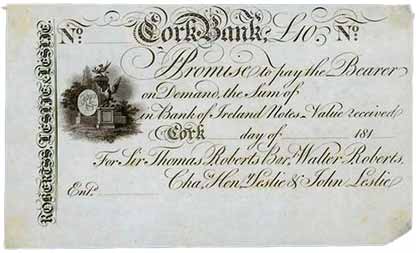 No. Cork Bank, £10, No.
I Promise to pay the Bearer
on Demand, the Sum of
in Bank of Ireland Notes. Value received
Cork day of 181
For Sir Thomas Roberts Bart. Walter Roberts,
Chas. Henry Leslie & John Leslie
Entd.
ROBERTS, LESLIE & LESLIE.